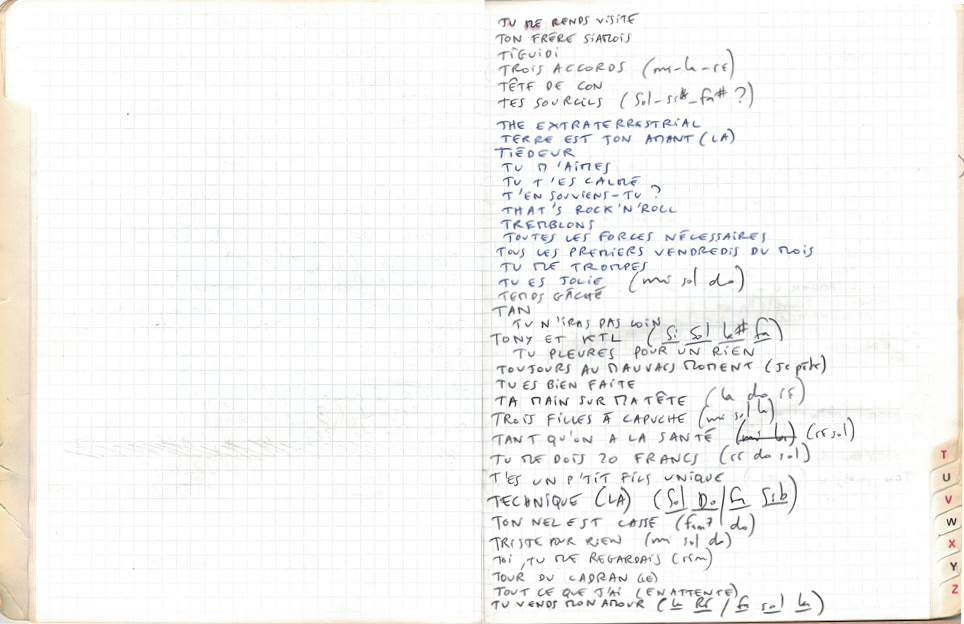 TU ME RENDS VISITE
TON FRÈRE SIAMOIS
TIGUIDI
TROIS ACCORDS (mi-la-ré)
TÊTE DE CON
TES SOURCILS (Sol-si#-fa# ?)
THE EXTRATERRESTRIAL
TERRE EST TON AMANT (LA)
TIÉDEUR
TU M'AIMES
TU T'ES CALMÉ
T'EN SOUVIENS-TU ?
THAT'S ROCK'N'ROLL
TREMBLONS
TOUTES LES FORCES NÉCESSAIRES
TOUS LES PREMIERS VENDREDIS DU MOIS
TU ME TROMPES
TU ES JOLIE (mi sol do)
TEMPS GÂCHÉ
TAN
TU N'IRAS PAS LOIN
TONY ET KTL (Si Sol la# fa)
TU PLEURES POUR UN RIEN
TOUJOURS AU MAUVAIS MOMENT (je pète)
TU ES BIEN FAITE
TA MAIN SUR MA TÊTE (la do ré)
TROIS FILLES À CAPUCHE (mi sol la)
TANT QU'ON A LA SANTÉ (mi la) (ré sol)
TU ME DOIS 20 FRANCS (ré do sol)
T'ES UN P'TIT FILS UNIQUE
TECHNIQUE (LA) (Sol Do / Fa Sib)
TON NEZ EST CASSÉ (fam7 do)
TRISTE POUR RIEN (mi sol do)
TOI, TU ME REGARDAIS (rém)
TOUR DU CADRAN (LE)
TOUT CE QUE J'AI (EN ATTENTE)
TU VENDS MON AMOUR (la Ré / fa sol la)
T
U
V
W
X
Y
Z